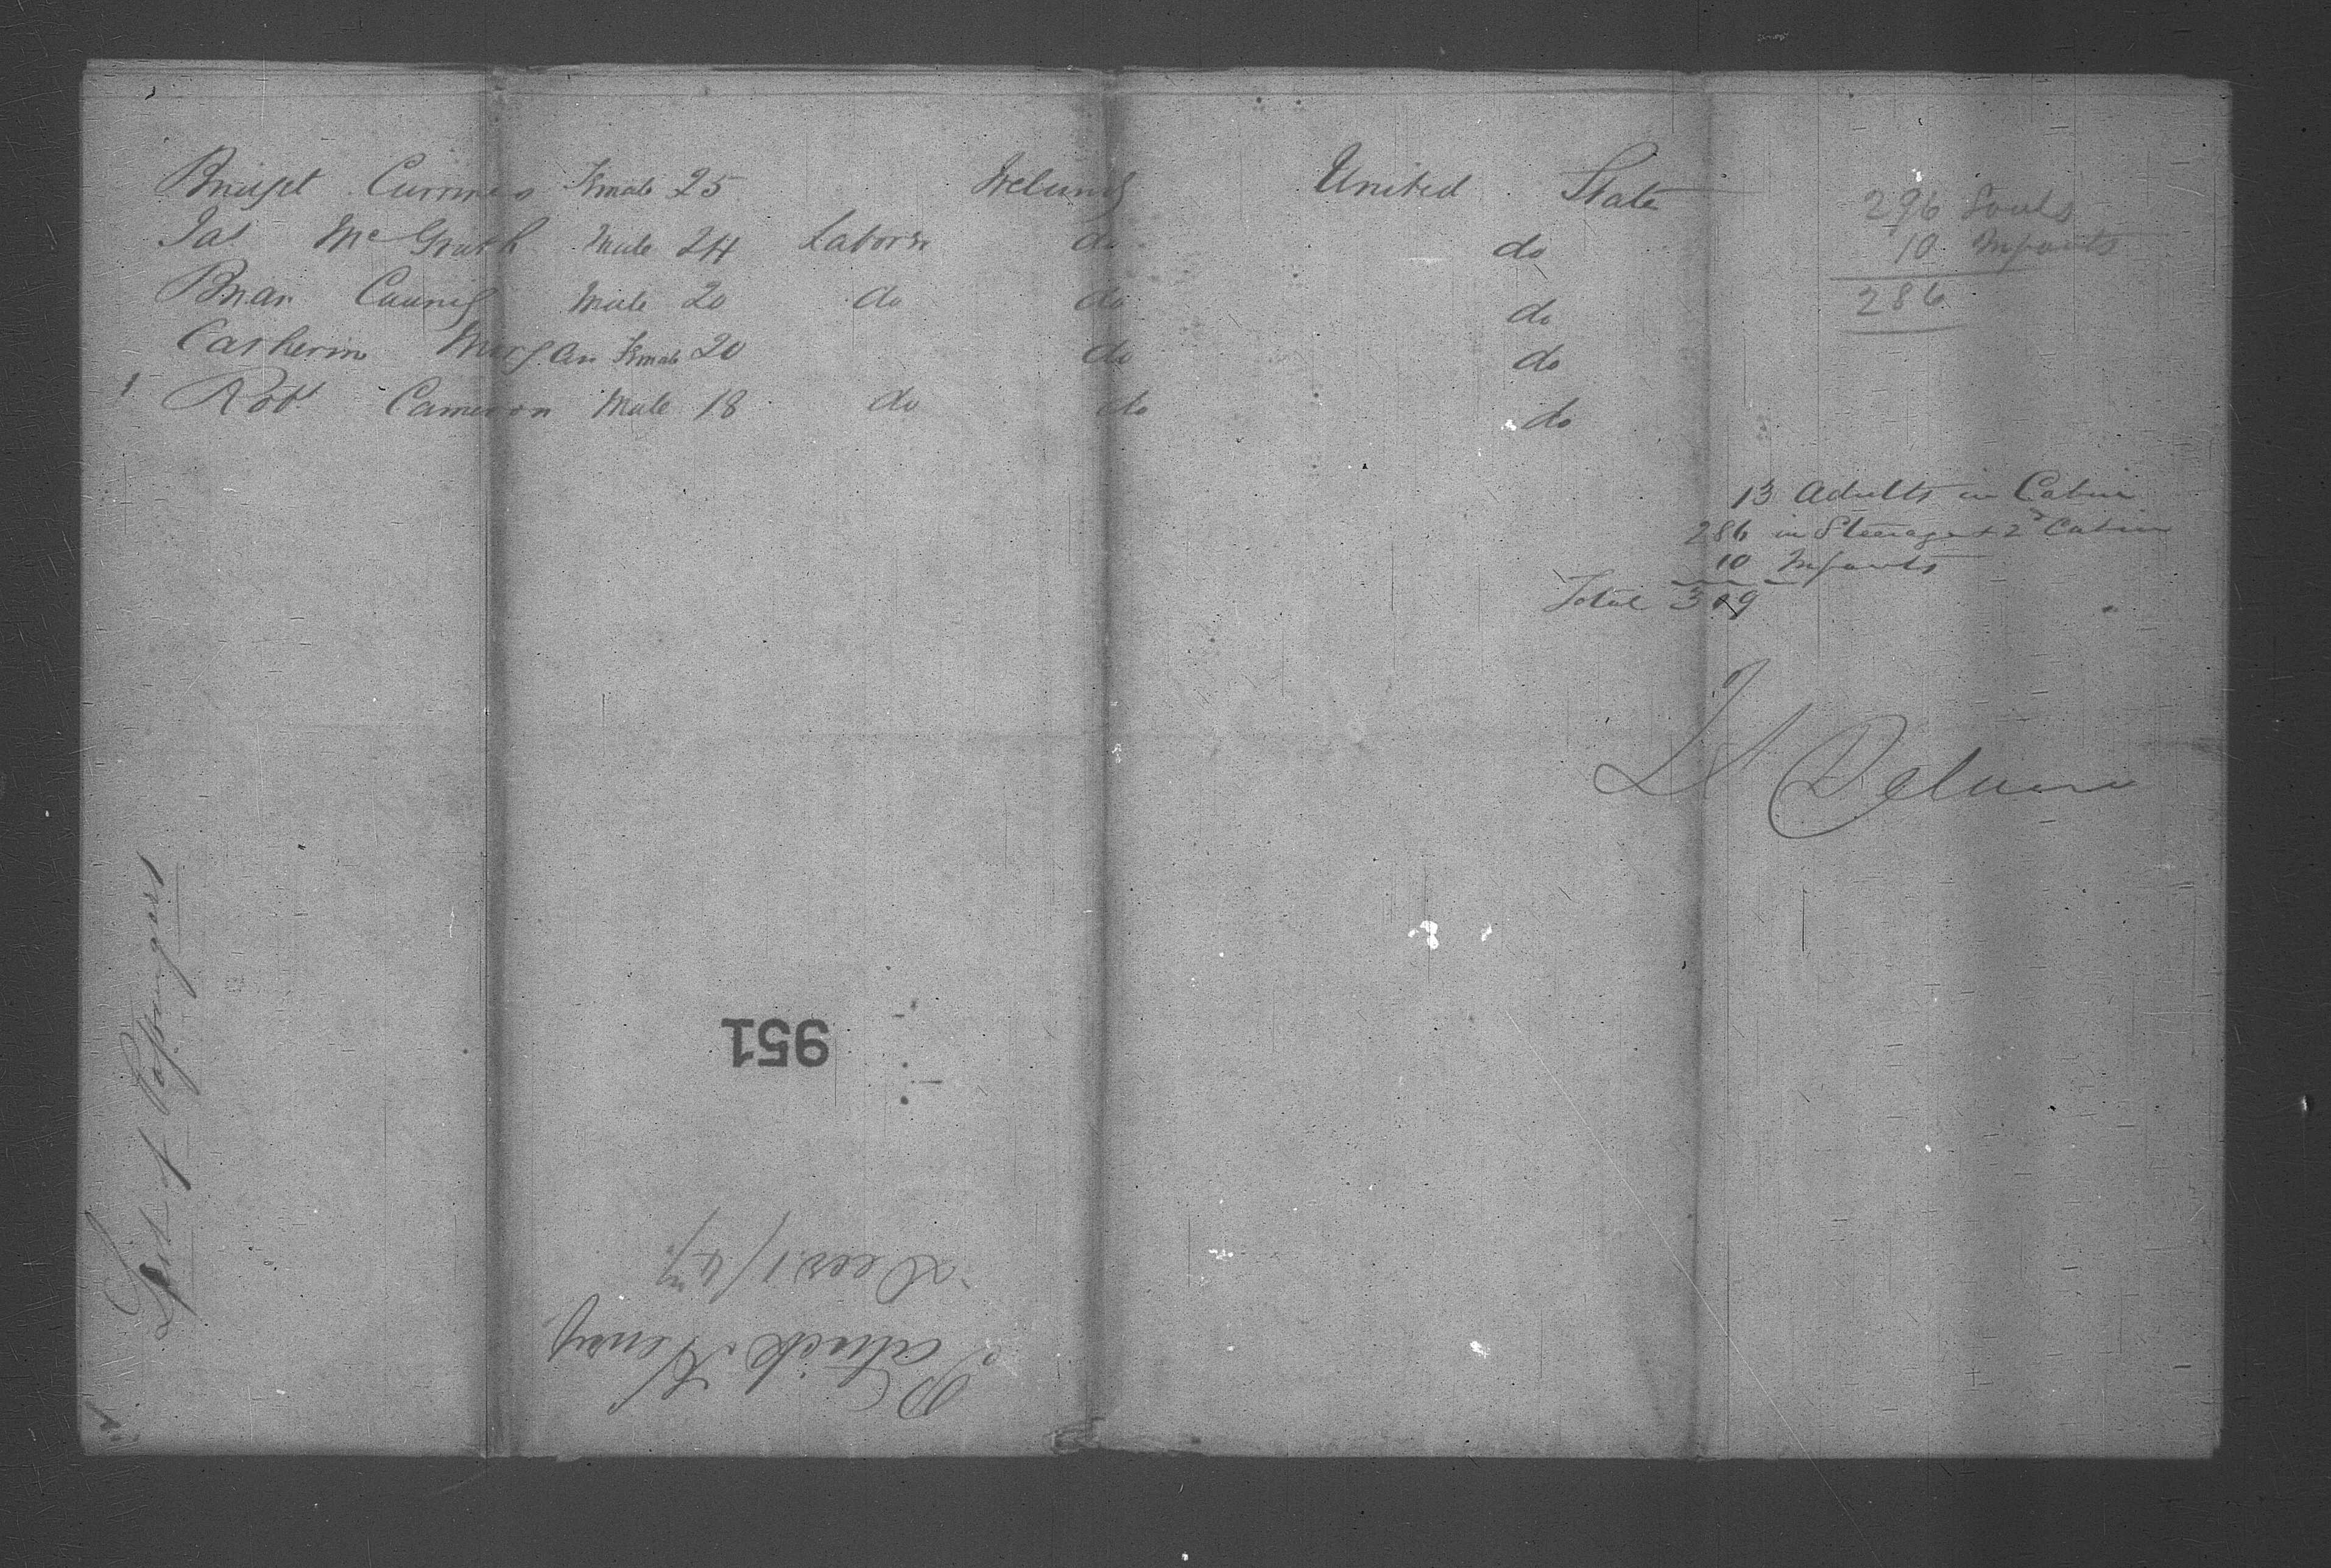 Bridget Cummes Female 25 Ireland United State
Jas McGrath Male 24 Laborer do do
Brian Male 20 do do do
Catherin Morgan Female 20 do do
1 Robt Cameron Male 18 do do do
296 Souls
10 Infants
286
13 Adults in Cabin
286 in Steerage + 2d Cabin
10 Infants
Total 309
List of Passengers
951
Patrick Henry
Decr 1/47